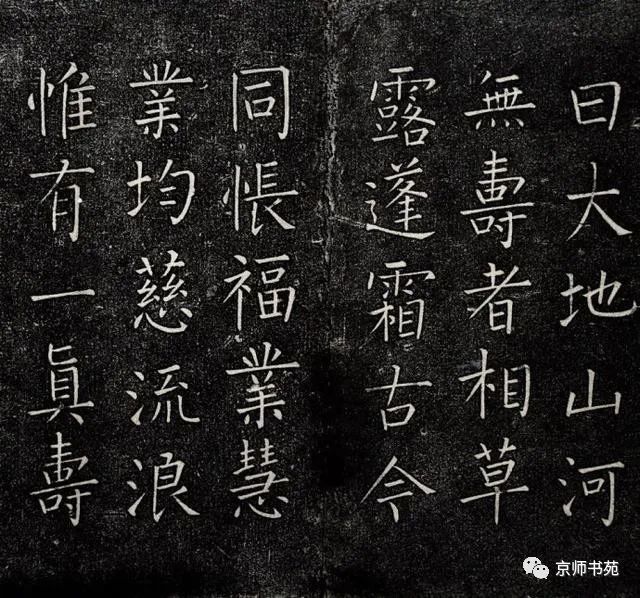 曰大地山河
無壽者相草
露蓬霜古今
同悵福業慧
業均慈流浪
惟有一真壽
京师书苑